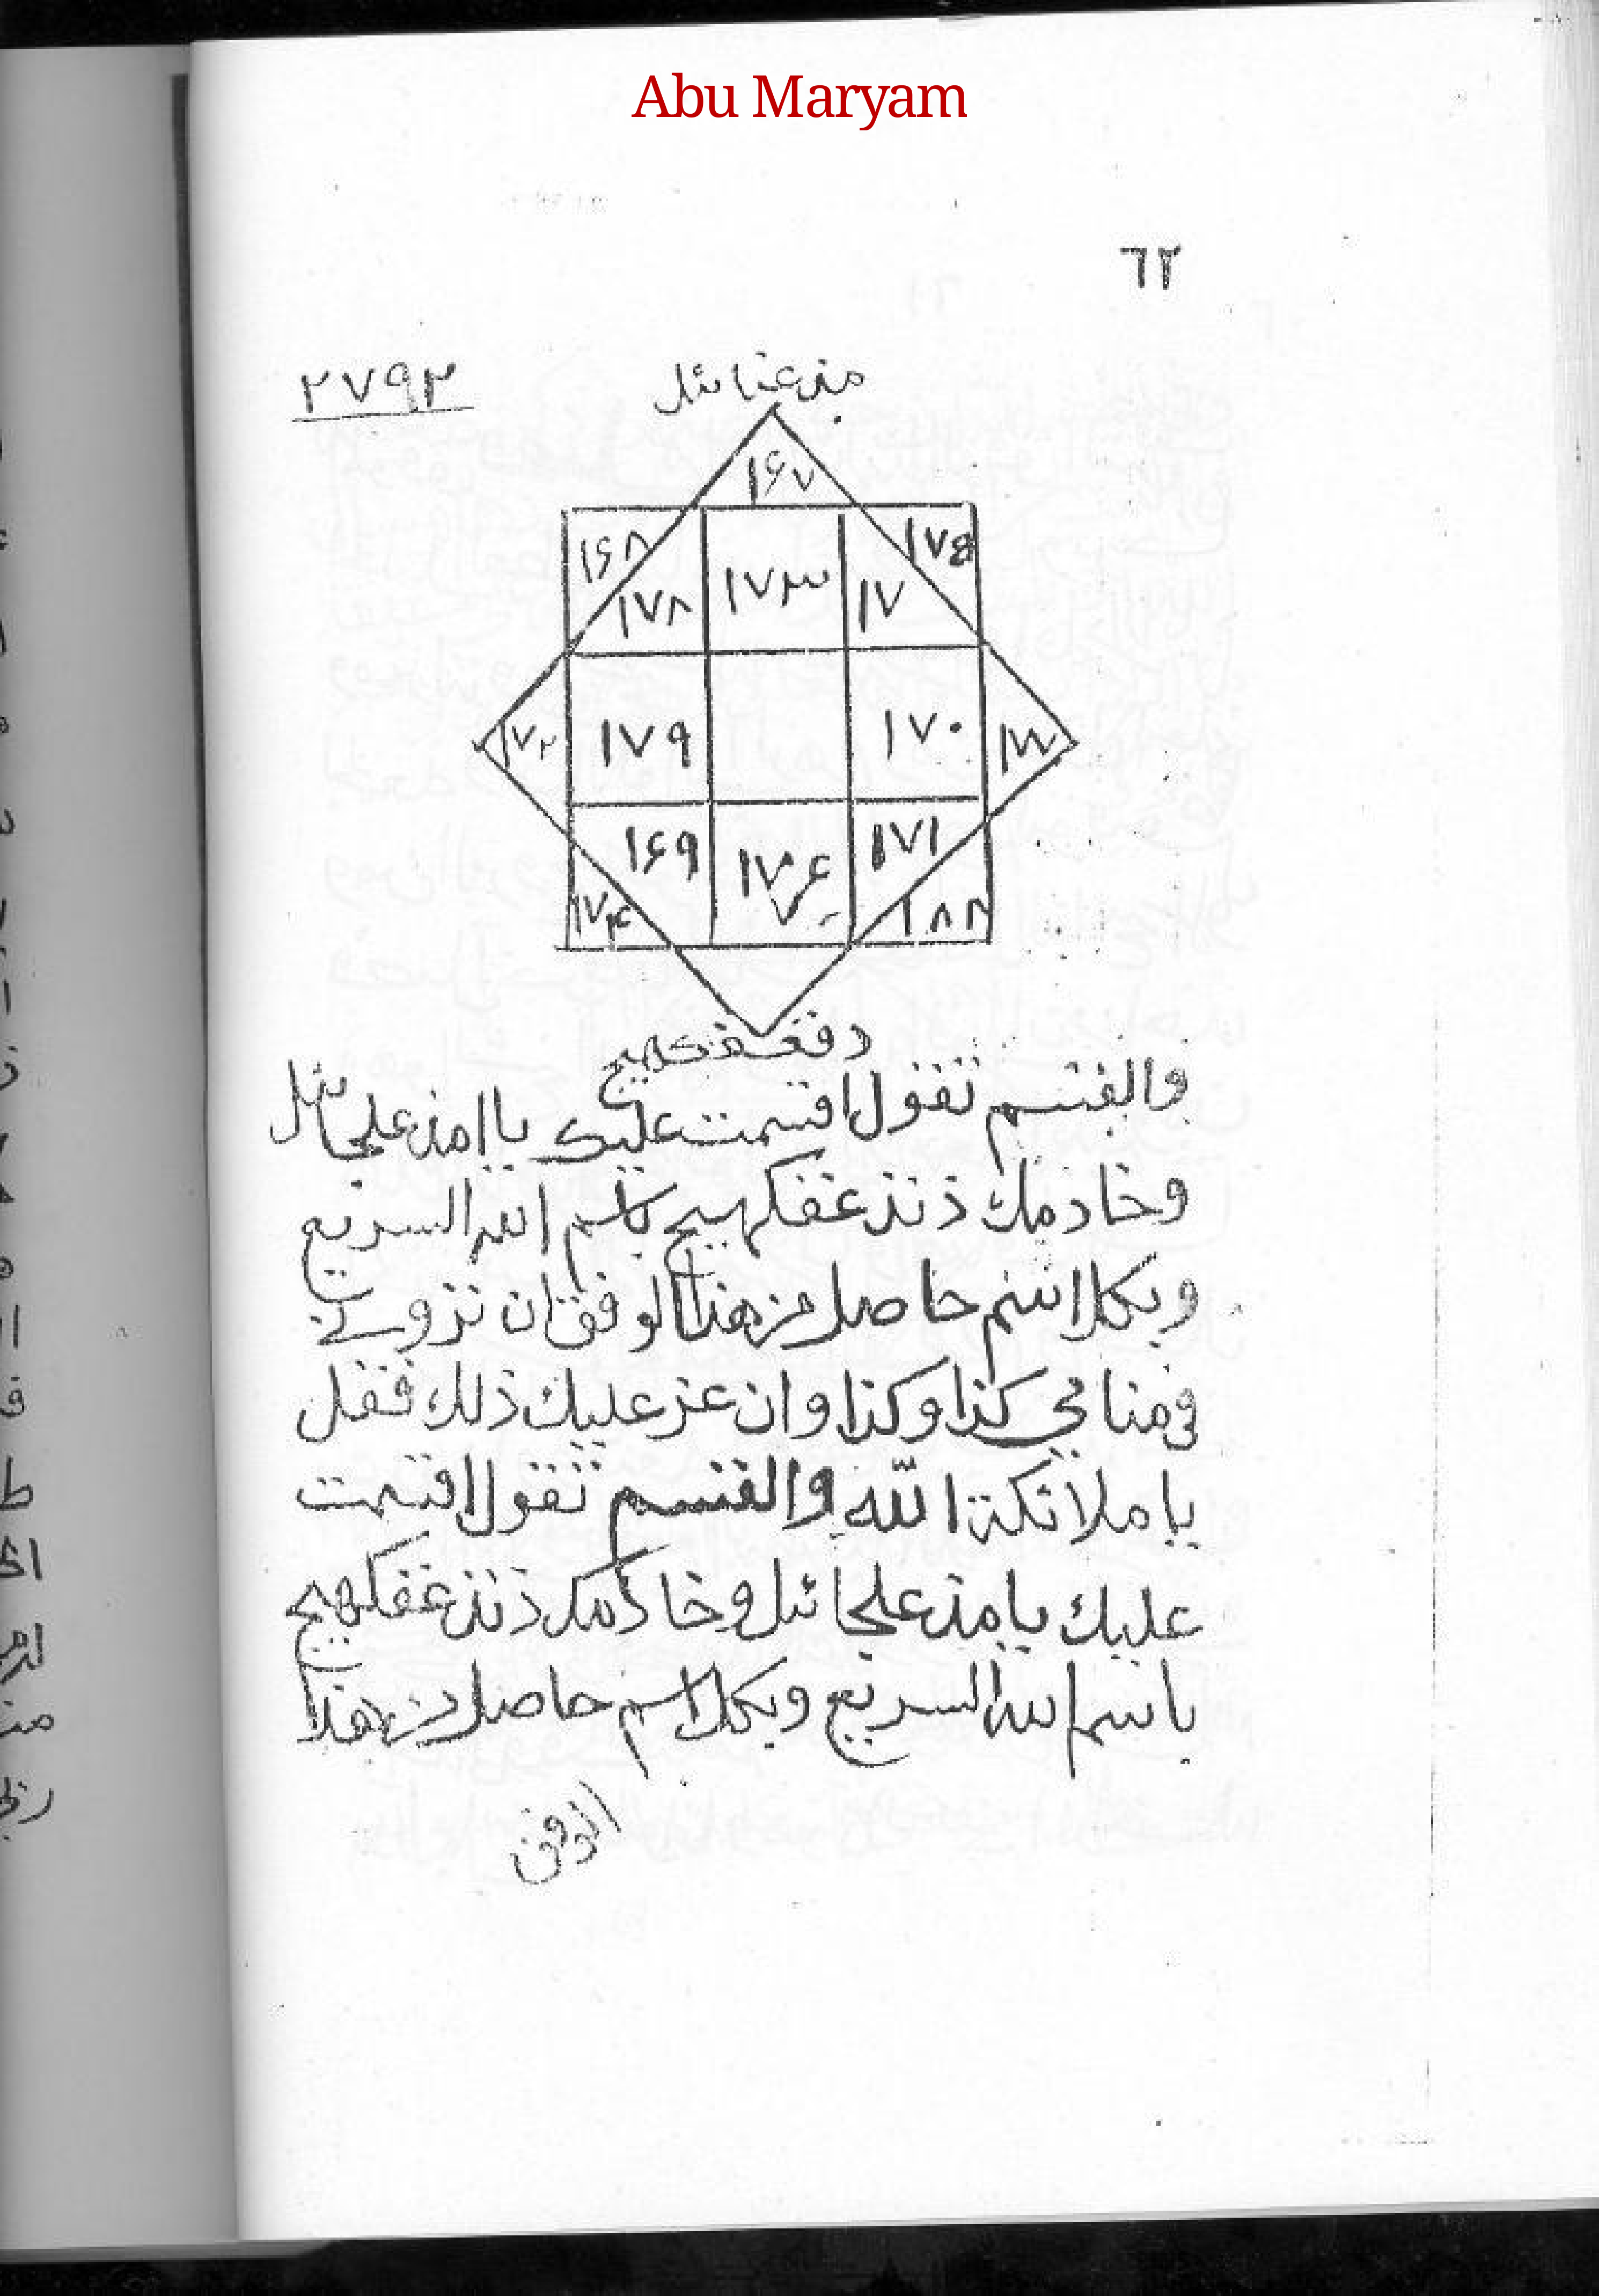 Abu Maryam
٦٢
٢٧٩٢
١۶٧
١۶٨
١٧٨ ١٧٣ ١٧
١٧٩ ١٧٠
١۶٩ ١٧١
١٨٨
والقسم تقول اقسمت عليك يا
وخادمك ذنذغفكهيج باسم الله السريع
وبكل اسم حاصل من هذا الوفق ان تروني
في منامي كذا وكذا وان عز عليك ذلك فقل
يا ملائكة الله والقسم تقول اقسمت
عليك يا مذعلجائل وخادمك ذنذغفكهيج
باسم الله السريع وبكل اسم حاصل من هذا
الوفق